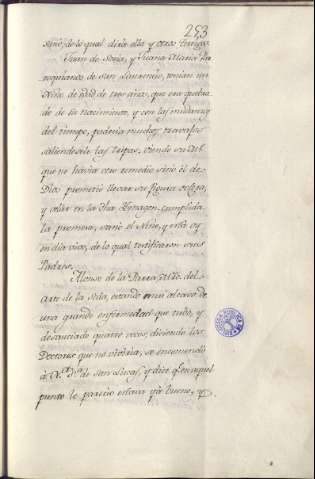 253
sanó, de lo qual dirá ella y otros testigos.
Juan de Soria, y Juana Maria Pa
rroquianos de San Laurencio, tenian un
Niño de edad de tres años, que era quebra
do de su nacimiento, y con las mudanzas
del tiempo, padecia muchos trabajos
saliendosele las tripas, viendo su
que no havia otro remedio sino el de
Dios prometió llevar su figura de Cera,
y velar en la Sta Ymagen, cumplida
la promesa, sanó el Niño, y está oy
en dia vivo, de lo qual testificaron sus
Padres.
Alonso de la Mtro del
Arte de la Seda, estando muy al cavo de
una grande enfermedad que tubo, y
desauciado quatro veces, diciendo los
Doctores que no viviria, se encomendó
á Na Sa de San Lucas, y dice q en aquel
punto le pareció estava ya bueno, y